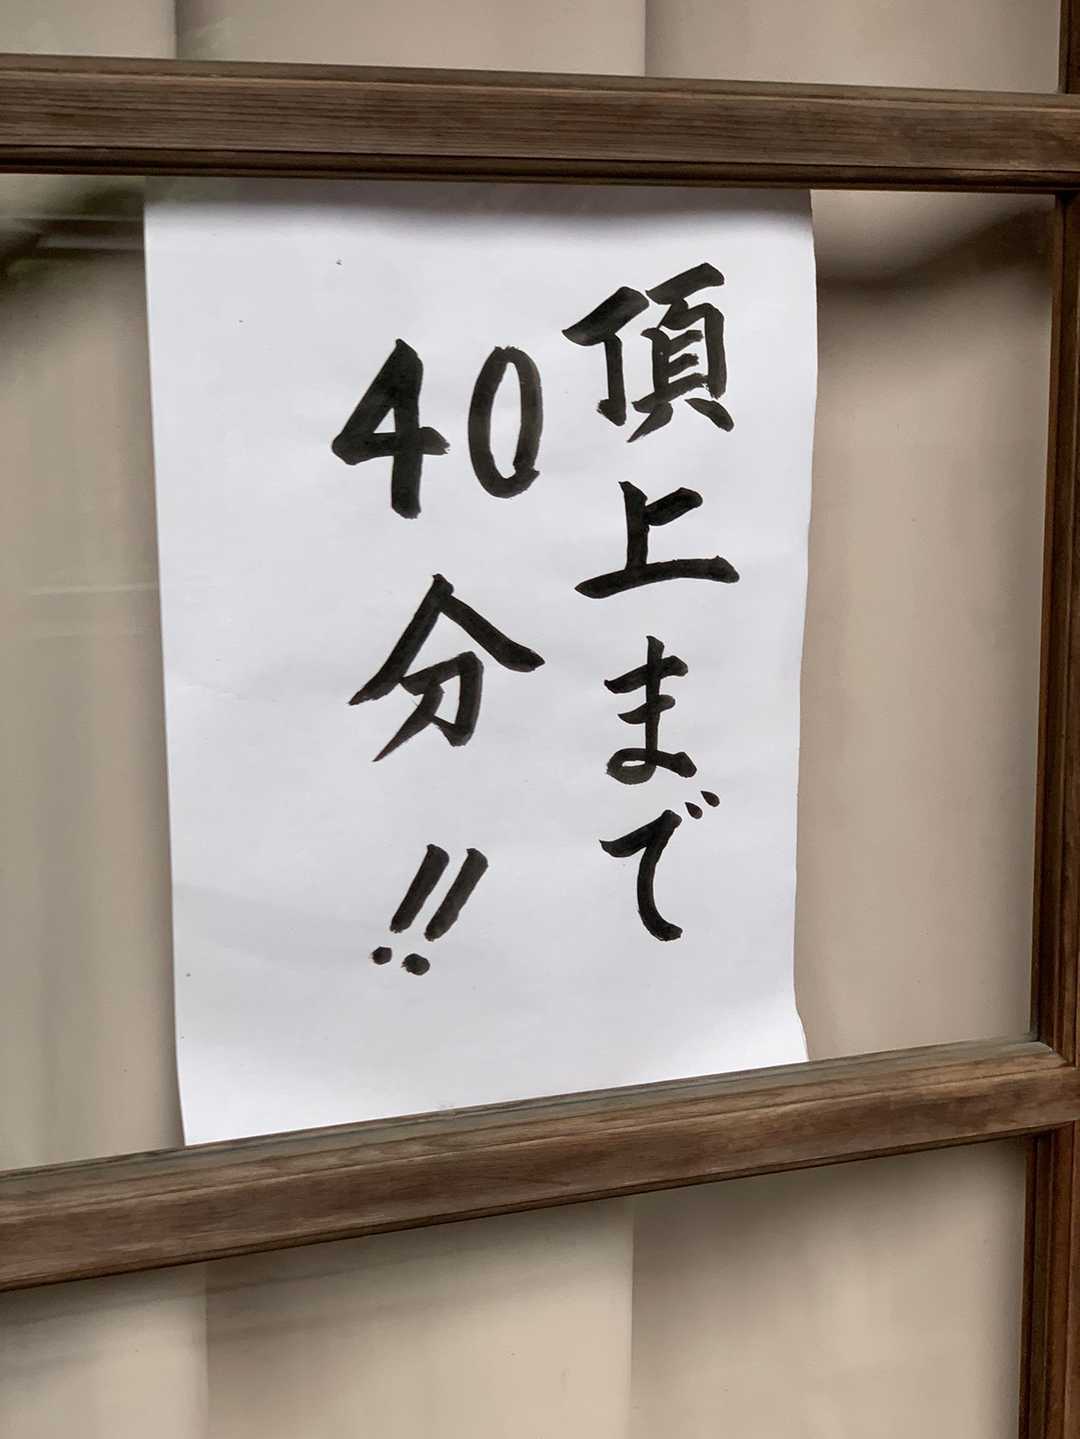 頂上まで
40分!!